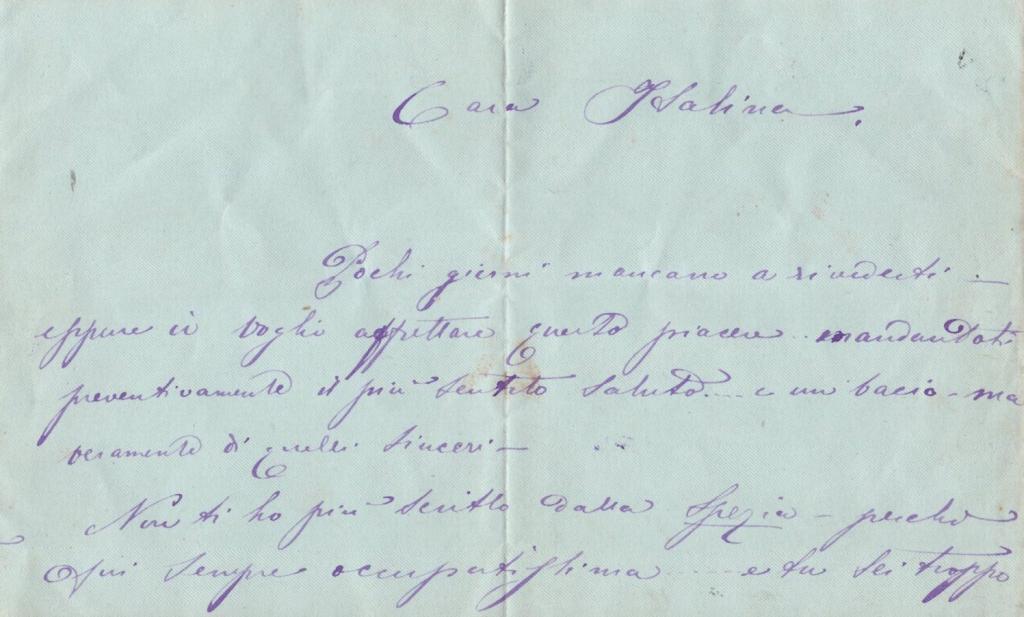 Cara Isalina.
Pochi giorni mancano a rivederti —
eppure io voglio affrettare questo piacere .. mandandoti
preventivamente il più sentito saluto.... e un bacio - ma
veramente di quelli sinceri —
Non ti ho più scritto dalla Spezia - perchè
fui sempre occupatissima .... e tu sei troppo